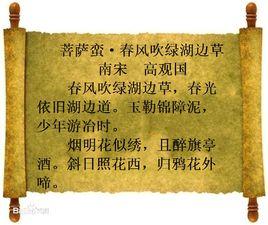 菩萨蛮·春风吹绿湖边草
南宋 高观国
春风吹绿湖边草，春光
依旧湖边道。玉勒锦障泥，
少年游冶时。
烟明花似绣，且醉旗亭
酒。斜日照花西，归鸦花外
啼。